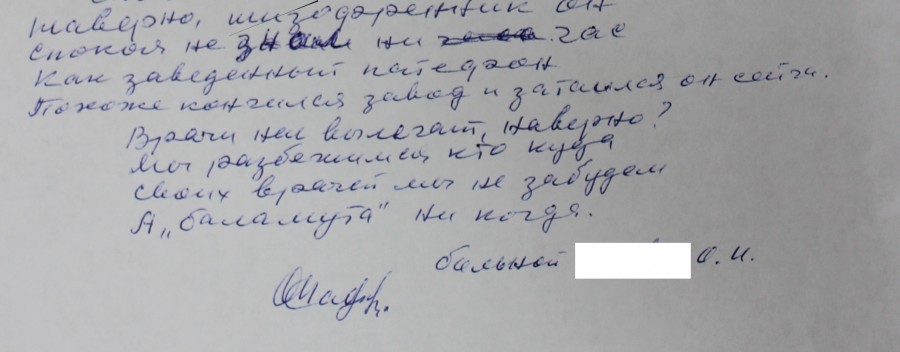 наверно, шизофренник он
спокоя не знал ни час
Как заведенный патефон
Похоже кончился завод и затаился он сейча.
Врачи нас вылечат, наверно?
Мы разбежимся кто куда
Своих врачей мы не забудем
А „баламута“ ни когда.
больной О. И.